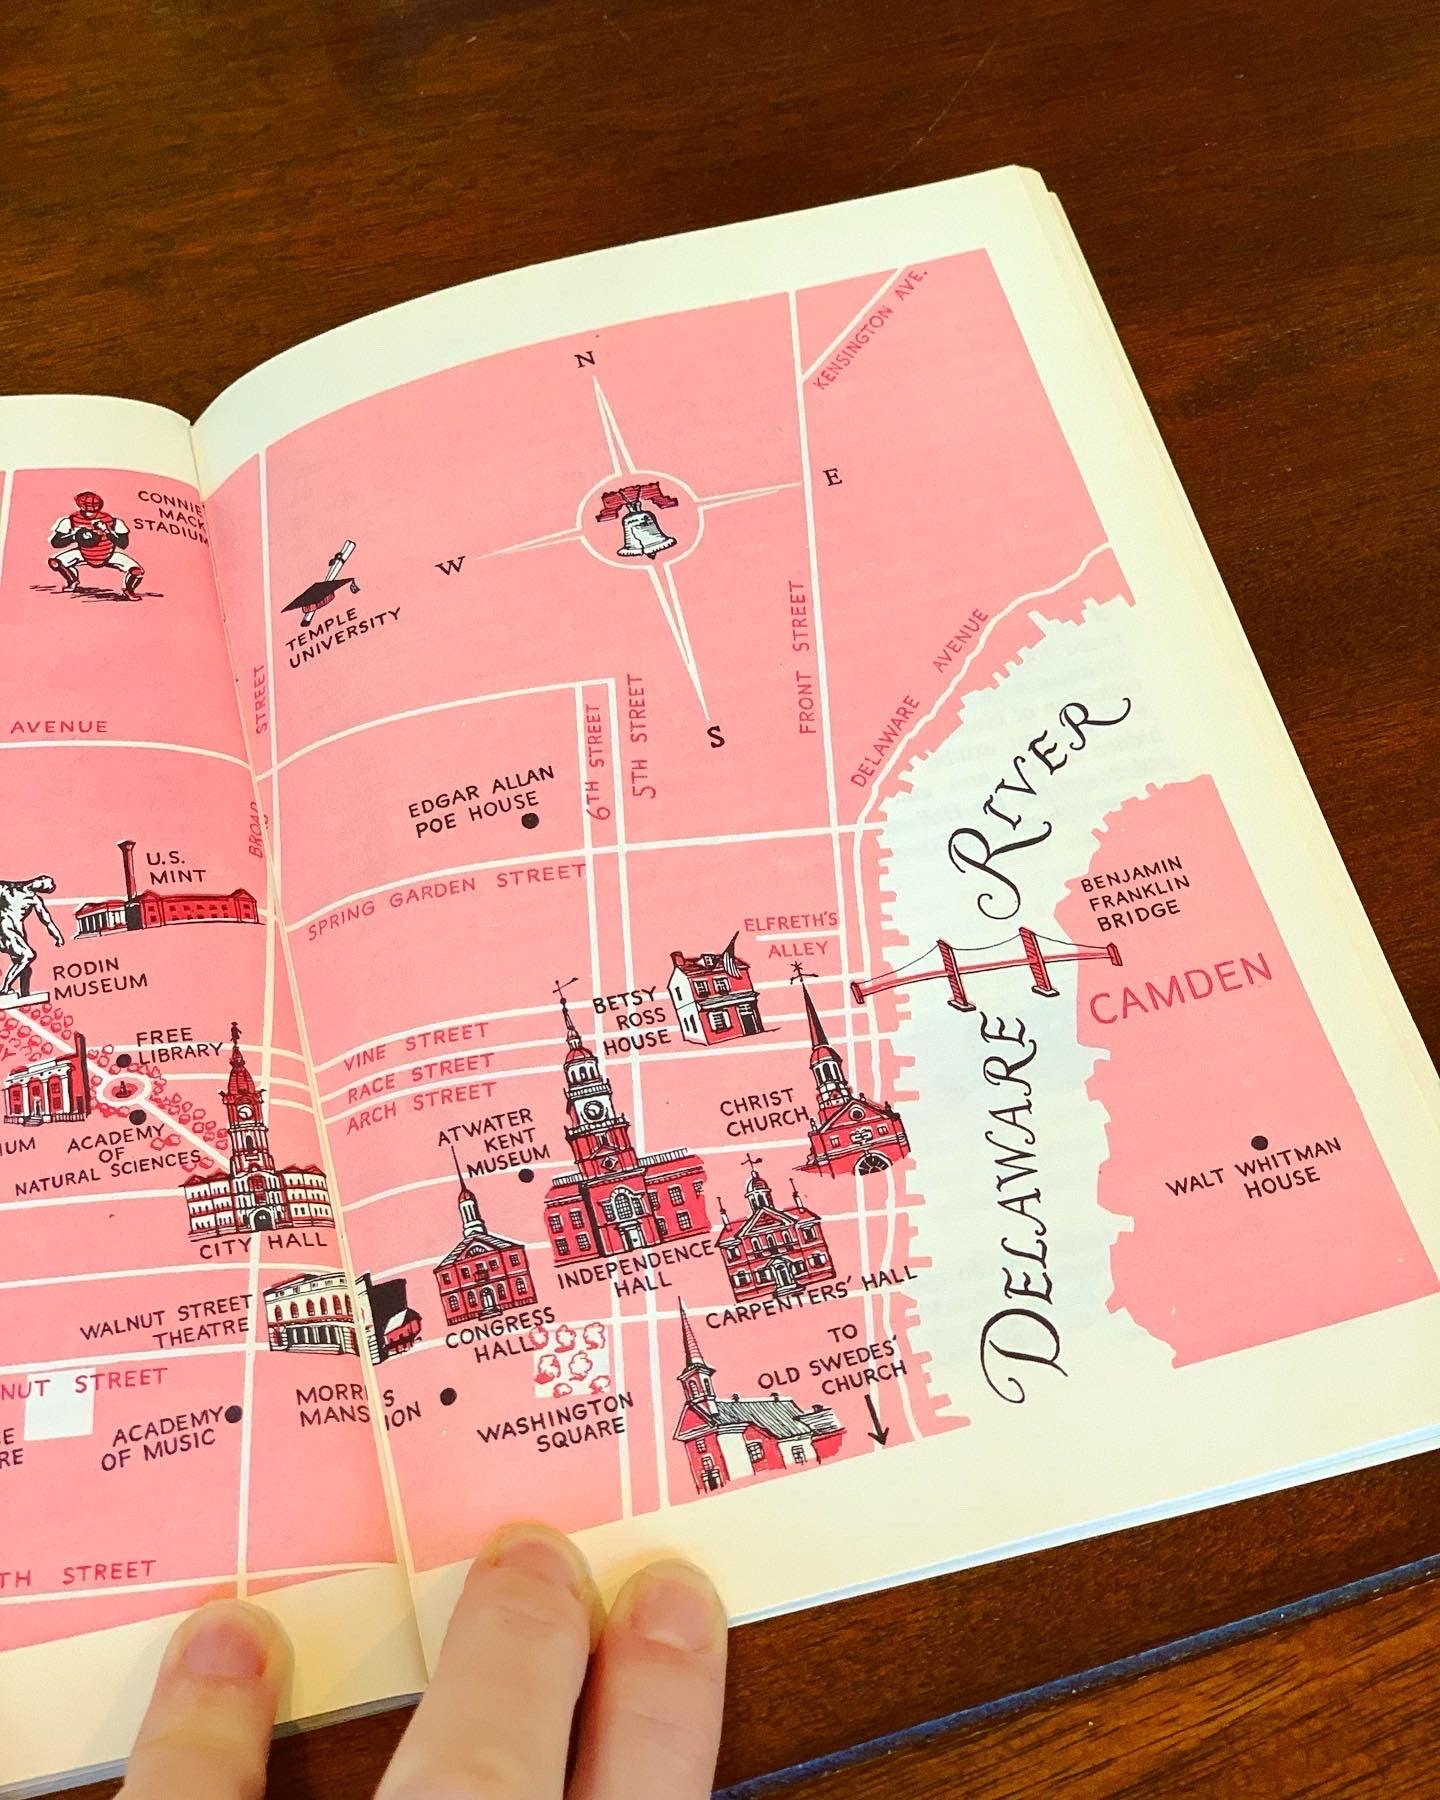 CONNIE
MACK
STADIUM
N
E
W
S
KENSINGTON AVE.
TEMPLE
UNIVERSITY
STREET
BROAD
AVENUE
FRONT STREET
DELAWARE AVENUE
6TH STREET
5TH STREET
EDGAR ALLAN
POE HOUSE
SPRING GARDEN STREET
U.S.
MINT
RODIN
MUSEUM
FREE
LIBRARY
ACADEMY
OF
NATURAL SCIENCES
CITY HALL
VINE STREET
RACE STREET
ARCH STREET
BETSY
ROSS
HOUSE
ELFRETH'S
ALLEY
DELAWARE RIVER
BENJAMIN
FRANKLIN
BRIDGE
CAMDEN
WALT WHITMAN
HOUSE
CHRIST
CHURCH
ATWATER
KENT
MUSEUM
INDEPENDENCE
HALL
CARPENTERS' HALL
CONGRESS
HALL
WALNUT STREET
THEATRE
MORRIS
MANSION
WASHINGTON
SQUARE
TO
OLD SWEDES'
CHURCH
STREET
ACADEMY
OF MUSIC
TH STREET